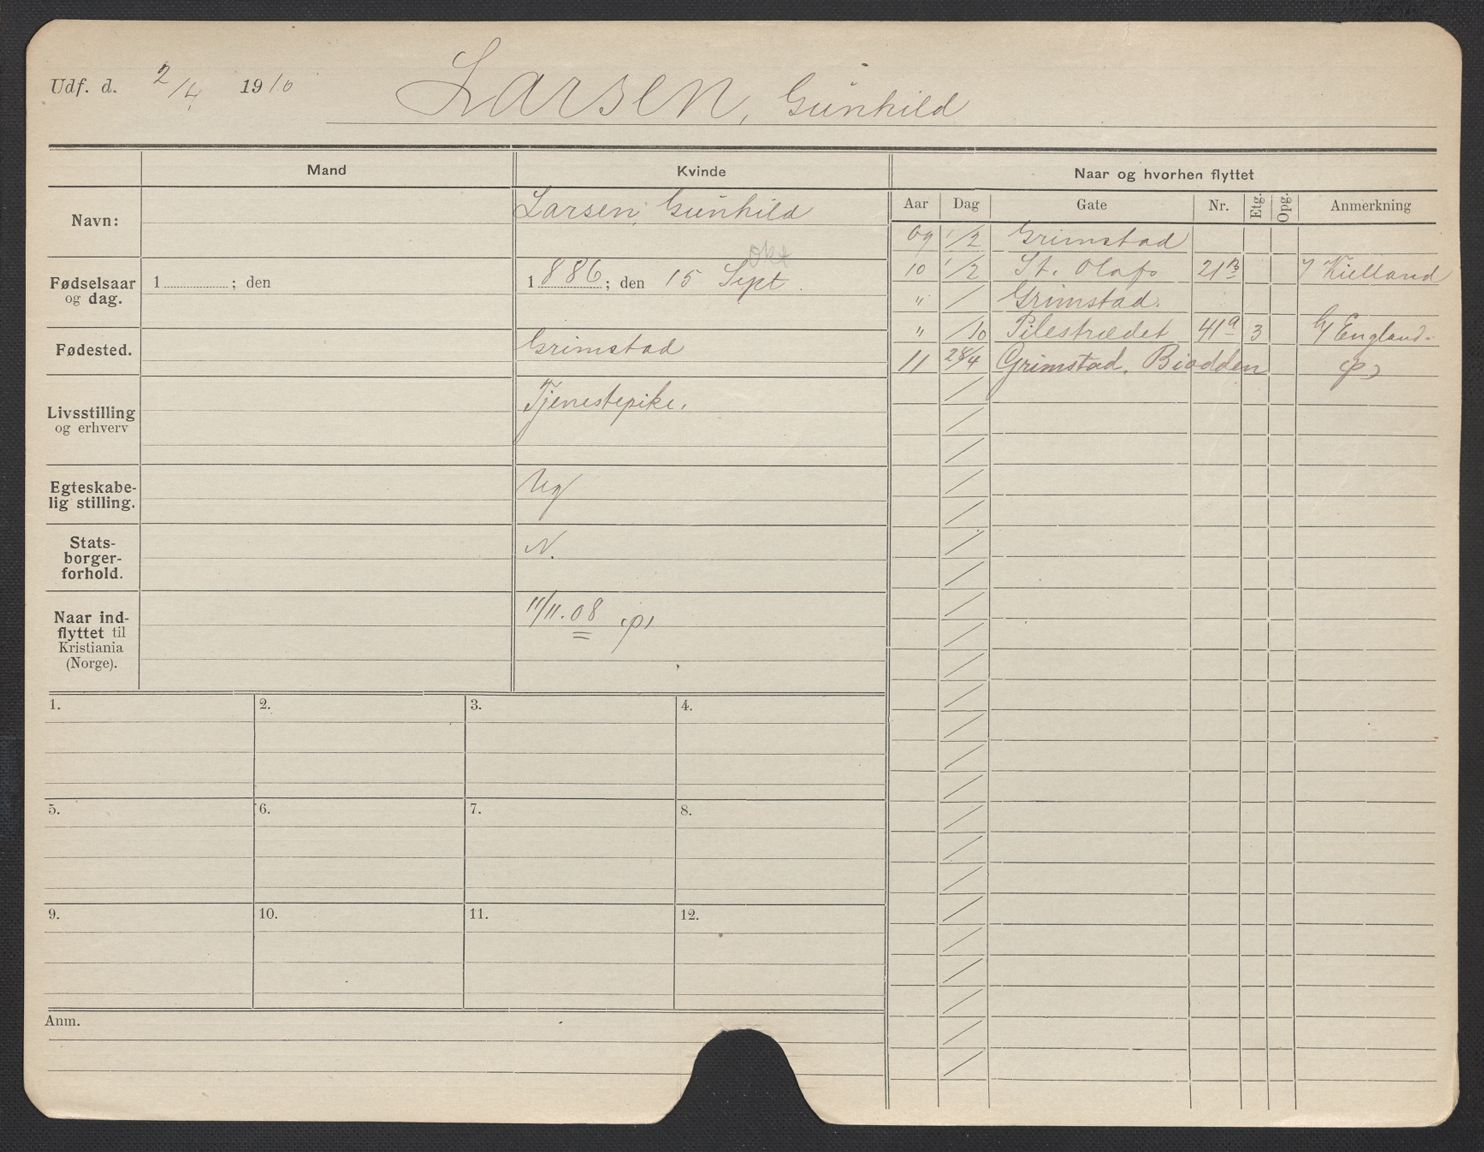 Udf. d. 2/4 1910 Larsen, Gunhild
Mand Kvinde Naar og hvorhen flyttet
Aar Dag Gate Nr. Etg. Opg. Anmerkning
Navn: Larsen, Gunhild
Fødselsaar og dag. 1 ; den 1886; den 15 Sept. okt
Fødested. Grimstad
Livsstilling og erhverv Tjenestepike.
Egteskabe-
lig stilling. Ug
Stats-
borger-
forhold. N.
Naar ind-
flyttet til
Kristiania
(Norge). 11/11.08
09 1/2 Grimstad
10 1/2 St. Olafs 21 B Kielland
" / Grimstad.
" /10 Pilestrædet 41a 3 England.
11 28/4 Grimstad,
1. 2. 3. 4.
5. 6. 7. 8.
9. 10. 11. 12.
Anm.